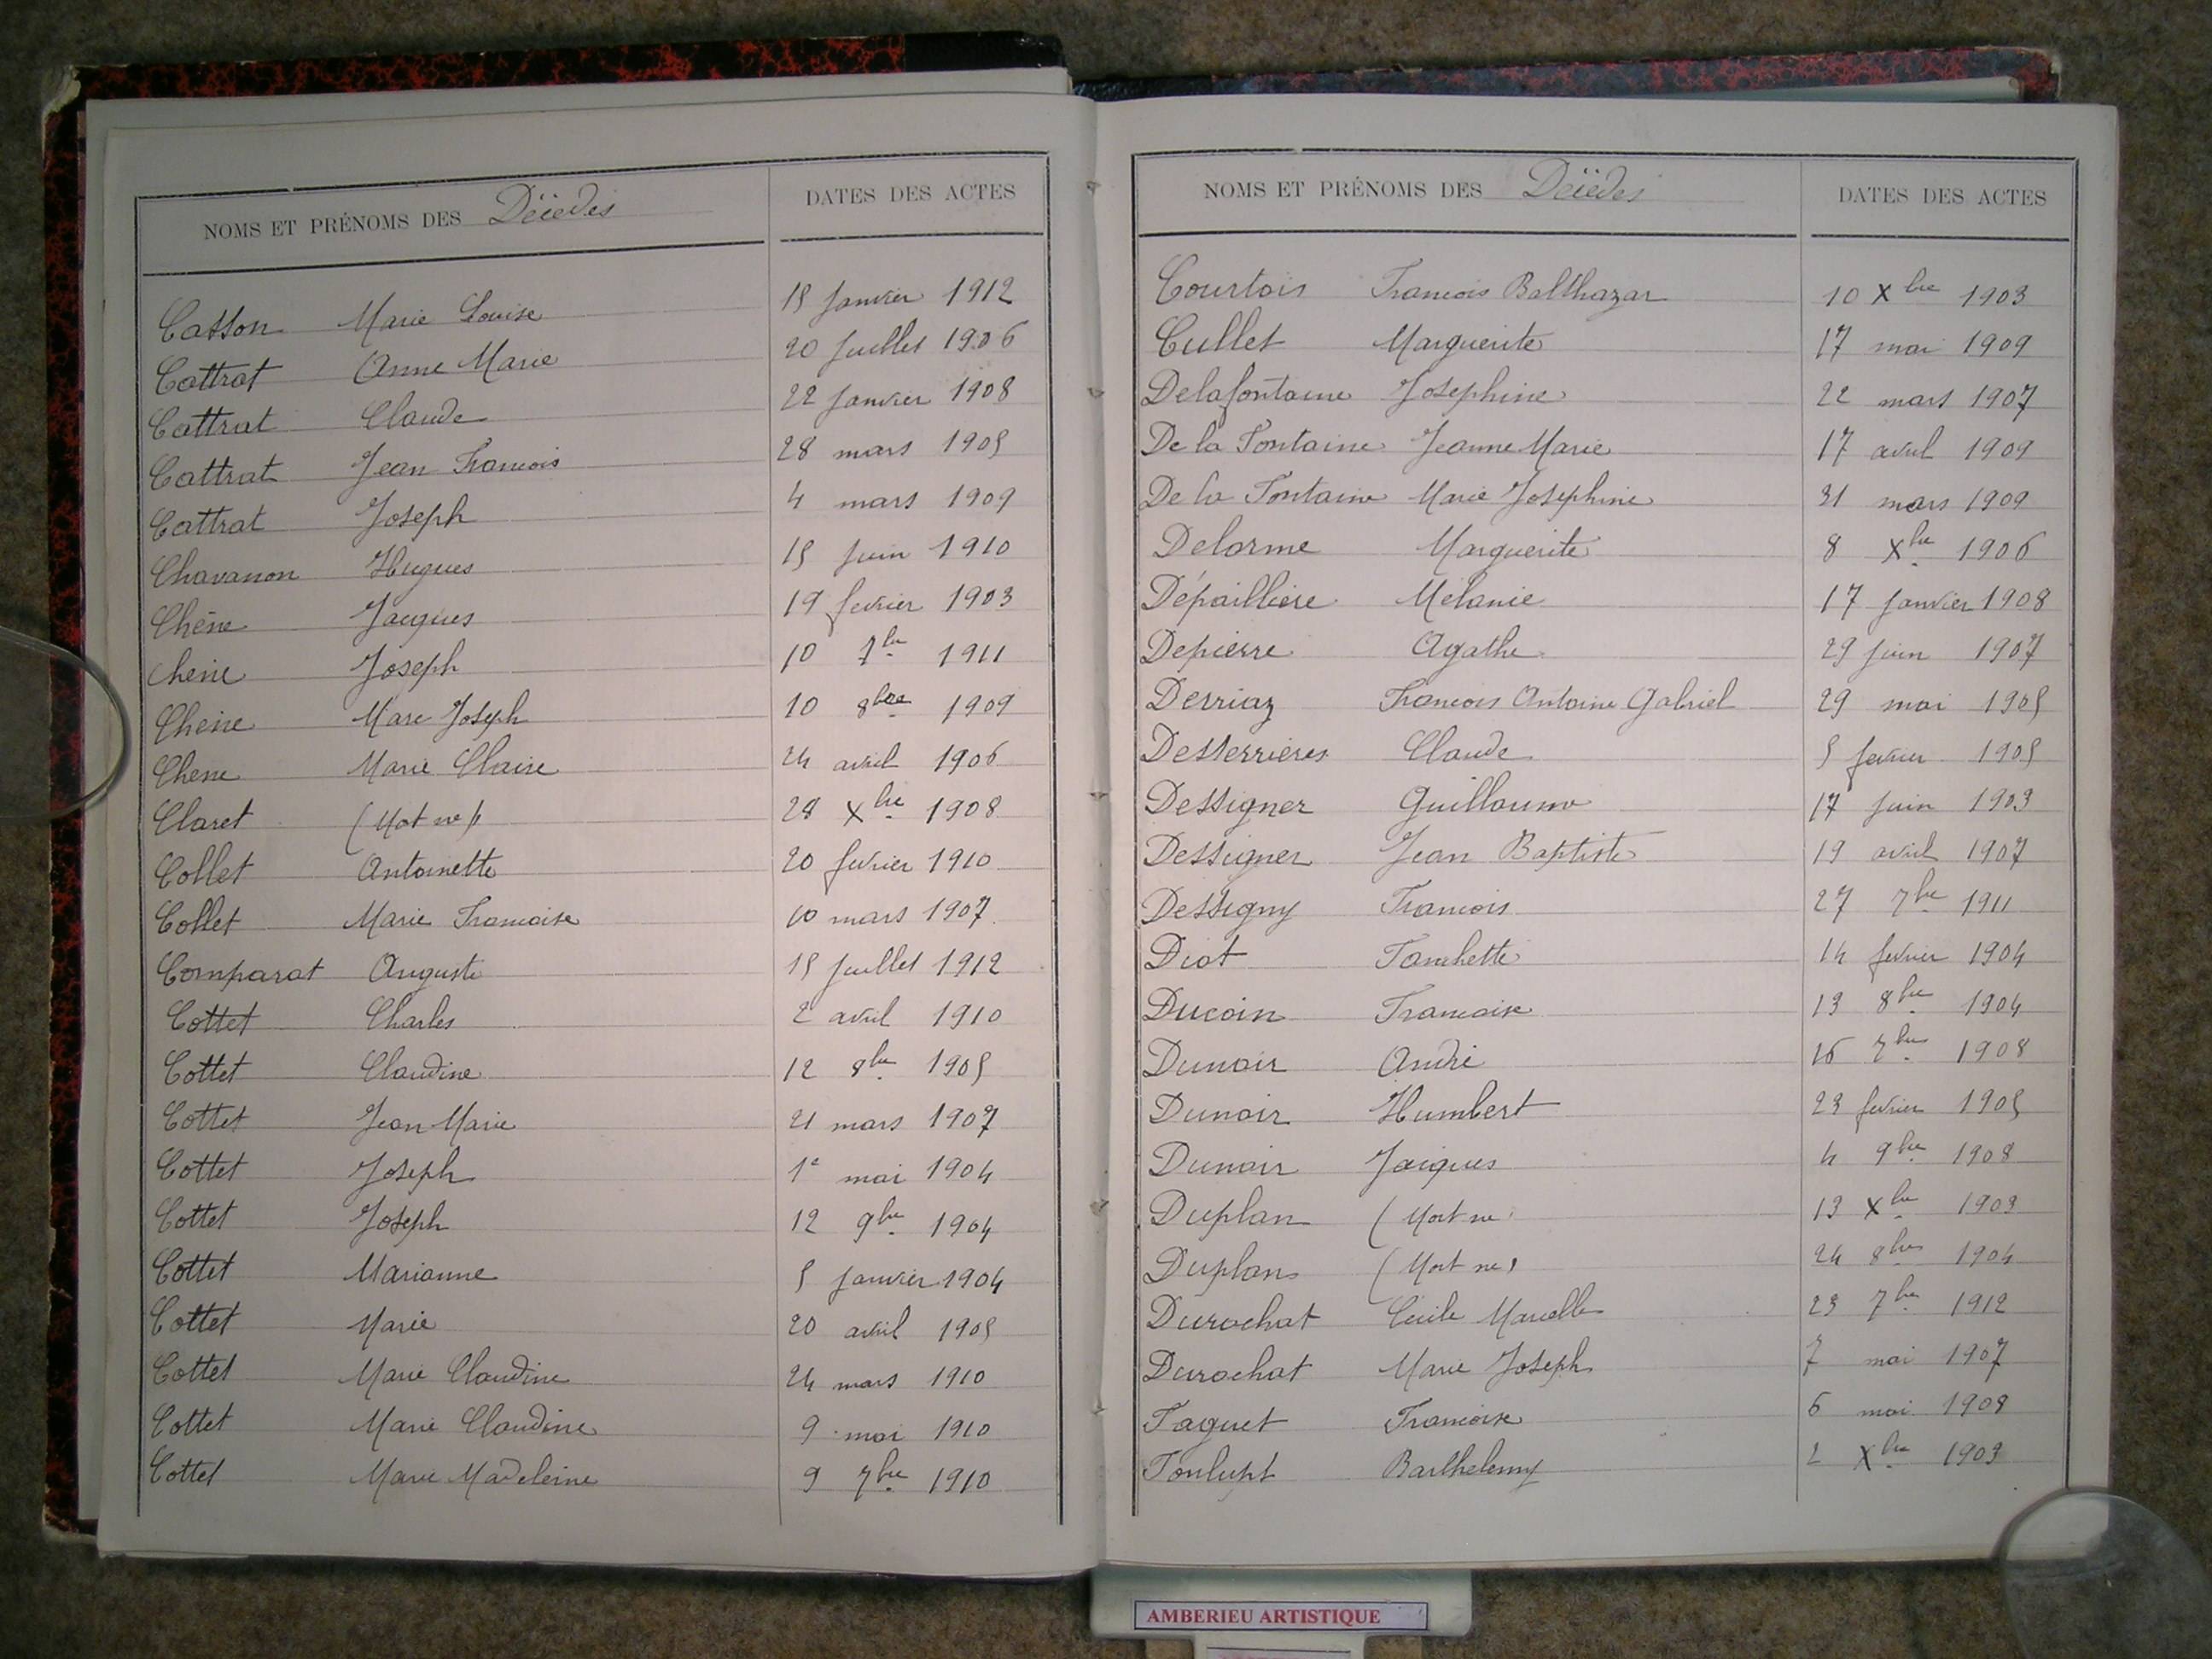 NOMS ET PRÉNOMS DES Décédés DATES DES ACTES
Casson Marie Louise 15 Janvier 1912
Cattrat Anne Marie 20 Juillet 1906
Cattrat Claude 22 Janvier 1908
Cattrat Jean Francois 28 mars 1905
Cattrat Joseph 4 mars 1909
Chavanon Hugues 15 Juin 1910
Chêne Jacques 19 fevrier 1903
chene Joseph 10 7bre 1911
Chêne Marc Joseph 10 8bre 1909
Chene Marie Claire 24 avril 1906
Claret (Mort né) Xbre 1908
Collet Antoinette 20 fevrier 1910
Collet Marie Francoise 10 mars 1907
Comparat Auguste 15 Juillet 1912
Cottet Charles 2 avril 1910
Cottet Claudine 12 8bre 1905
Cottet Jean Marie 21 mars 1907
Cottet Joseph 1e mai 1904
Cottet Joseph 12 9bre 1904
Cottet Marianne 5 Janvier 1904
Cottet Marie 20 avril 1905
Cottet Marie Claudine 24 mars 1910
Cottet Marie Claudine 9 mai 1910
Cottet Marie Madeleine 9 7bre 1910
NOMS ET PRÉNOMS DES Décédés DATES DES ACTES
Courtois Francois Balthazar 10 Xbre 1903
Cullet Marguerite 17 mai 1909
Delafontaine Josephine 22 mars 1907
De la Fontaine Jeanne Marie 17 avril 1909
De la Fontaine Marie Josephine 31 mars 1909
Delorme Marguerite 8 Xbre 1906
Dépaillière Mélanie 17 Janvier 1908
Depierre Agathe 29 Juin 1907
Derriaz Francois Antoine Gabriel 29 mai 1905
Desserrières Claude 5 fevrier 1905
Dessigner Guillaume 17 Juin 1903
Dessigner Jean Baptiste 19 avril 1907
Dessigny Francois 27 7bre 1911
Diot Fanchette 14 fevrier 1904
Ducoin Francoise 13 8bre 1904
Dunoir André 16 7bre 1908
Dunoir Humbert 23 fevrier 1905
Dunoir Jacques 4 9bre 1908
Duplan (Mort né 13 Xbre 1903
Duplan (Mort né) 24 8bre 1904
Durochat Cécile Marcelle 23 7bre 1912
Durochat Marie Joseph 7 mai 1907
Faguet Francoise 6 mai
Fonlupt Barthelemy 2 Xbre 1903
AMBERIEU ARTISTIQUE